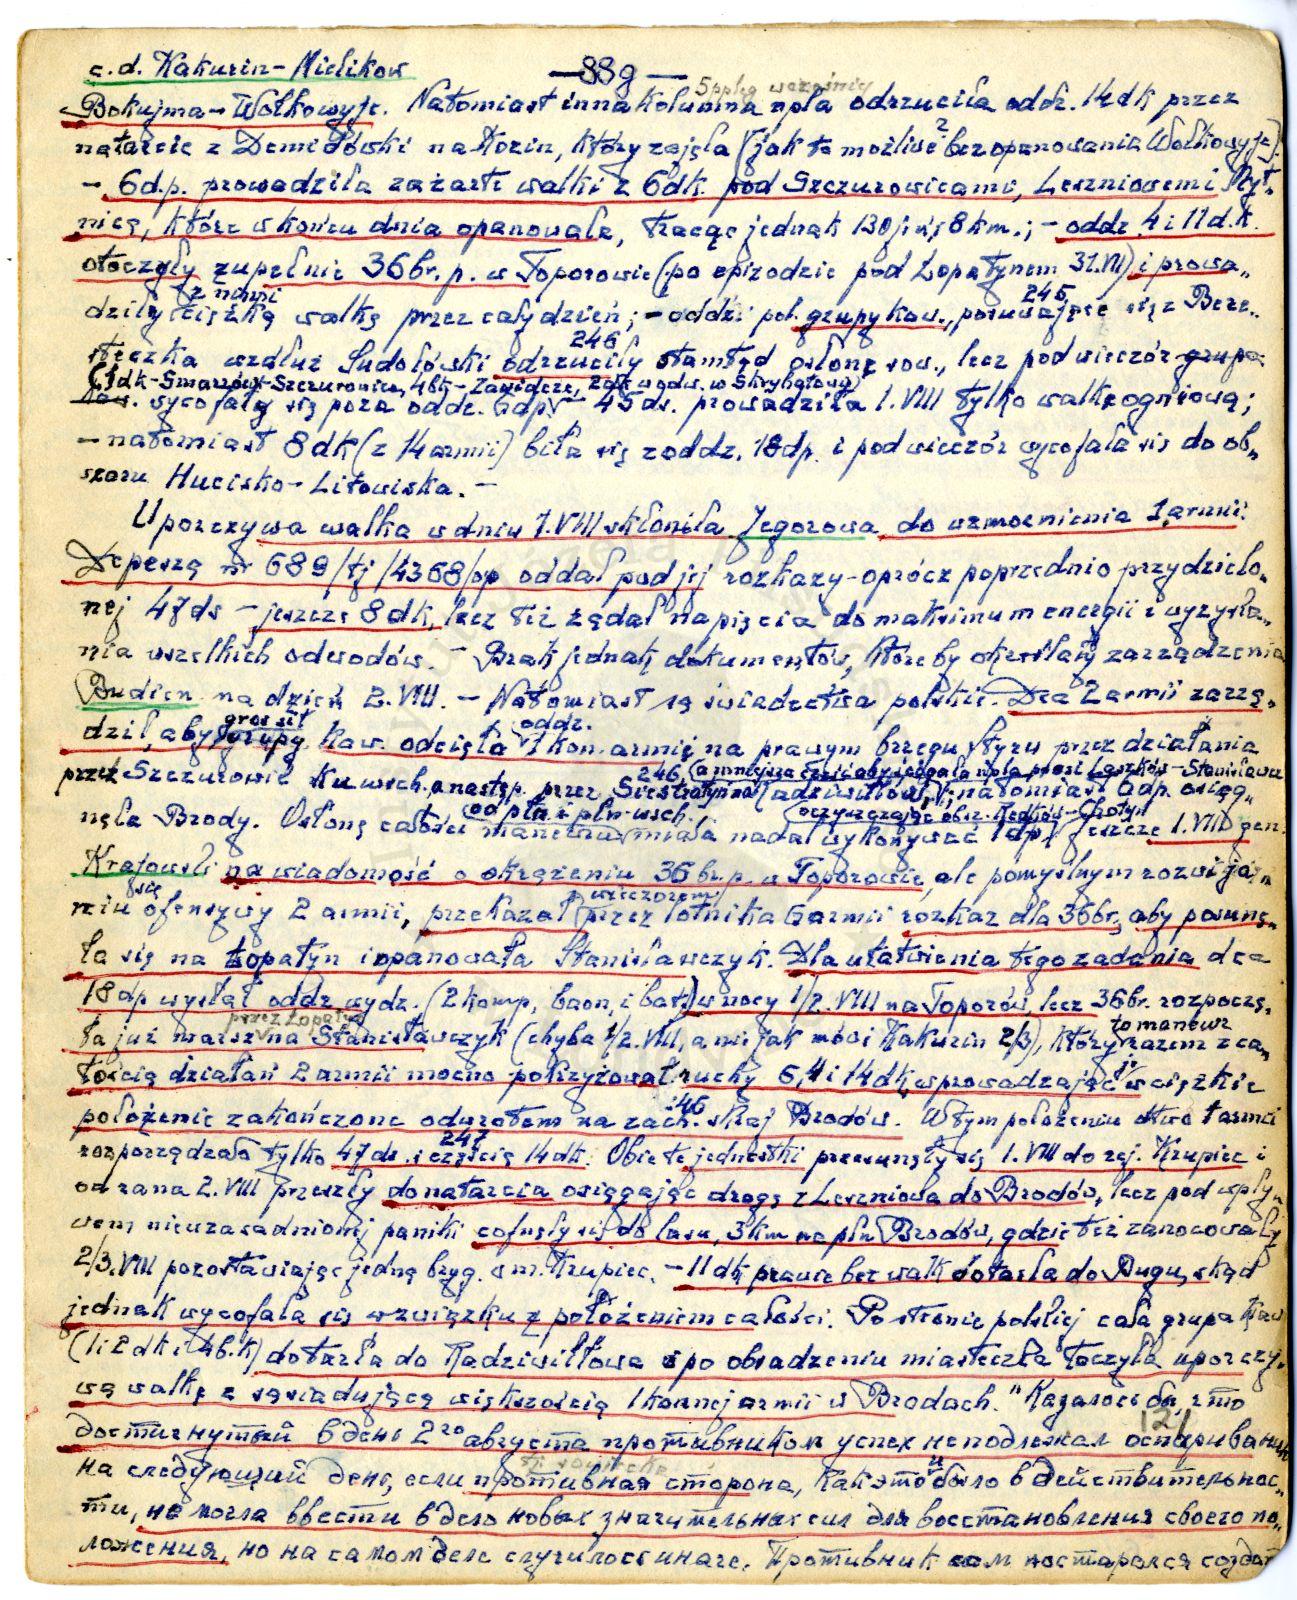 c.d. Kakurin-Mielikow
— 889 —
5 ppleg wcześniej
Bokujma - Wołkowyje. Natomiast inna kolumna npla odrzuciła oddz. 14 dk przez
natarcie z Demidówki na Kozin, który zajęła (jak to możliwe bez opanowania Wołkowyje)?
- 6 d.p. prowadziła zażarte walki z 6 dk. pod Szczurowicami, Leszniowem i
nicą, które w końcu dnia opanowała, tracąc jednak 130 jeń. i 8 km.; - oddz. 4 i 11 d.k.
otoczyły zupełnie 36 br. p. w Toporowie (po epizodzie pod Łopatynem 31.VII) i prowa-
z nami 245
dziły ciężką walkę przez cały dzień; - oddzi pol. grupy kaw., posuwające się z Bere-
246
steczka wzdłuż Sudołówki odrzuciły stamtąd osłonę sow., lecz pod wieczór grupa
(1 dk - Smarzów - Szczurowice, 4 bk - Zawidcze, 2 dk w odw. w Skrybołowy)
kaw. wycofały się poza oddz. 6 dp. - 45 ds. prowadziła 1.VIII tylko walkę ogniową;
- natomiast 8 dk (z 14 armii) biła się z oddz. 18 dp. i pod wieczór wycofała się do ob-
szaru Hucisko - Litowiska. -
Uporczywa walka w dniu 1.VIII skłoniła Jegorowa do wzmocnienia 1 armii.
Depeszą nr 689/tj/4368/op oddał pod jej rozkazy - oprócz poprzednio przydzielo-
nej 47 ds - jeszcze 8 dk, lecz też żądał napięcia do maksimum energii i wyzyska-
nia wszelkich odwodów. - Brak jednak dokumentów, które by określały zarządzenia
Budien. na dzień 2.VIII. - Natomiast są świadectwa polskie. Dca 2 armii zarzą-
gros sił oddz.
dził, aby grupy kaw. odcięła 1 kon. armię na prawym brzegu Styru przez działania
246 (a mniejszą część aby ścigała npla przez Laszków - Stanisławcz
przez Szczurowice ku wsch. a następ. przez Siestratyn na Radziwiłłów, natomiast 6 dp. osiąg-
od płd i płn-wsch. oczyszczając obsz. Redków - Chołyń
nęła Brody. Osłonę całości manewru miała nadal wykonywać 1 dp. Jeszcze 1.VIII gen.
Krajowski na wiadomość o okrążeniu 36 br. p. w Toporowie, ale pomyślnym rozwijają-
się wieczorem
niu ofensywy 2 armii, przekazał przez lotnika 6 armii rozkaz dla 36 br., aby posunę-
ła się na Łopatyn i opanowała Stanisławczyk. Dla ułatwienia tego zadania dca
18 dp wysłał oddz. wydz. (2 komp, baon, i bat) w nocy 1/2.VIII na Toporów, lecz 36 br. rozpoczę-
przez Łopatyn to manewr
ła już marsz na Stanisławczyk (chyba 1/2.VIII, a nie jak mówi Kakurin 2/3), który razem z ca-
je
łością działań 2 armii mocno pokrzyżował ruchy 6, 4 i 14 dk wprowadzając w ciężkie
246
położenie zakończone odwrotem na zach. skraj Brodów. W tym położeniu dtwo 1 armii
247
rozporządzało tylko 47 ds. i częścią 14 dk. Obie te jednostki przesunęły się 1.VIII do rej. Krupiec i
od rana 2.VIII przeszły do natarcia osiągając drogę z Leszniowa do Brodów, lecz pod wpły-
wem nieuzasadnionej paniki cofnęły się do lasu, 3 km na płn Brodów, gdzie też zanocowały
2/3.VIII pozostawiając jedną bryg. w m. Krupiec. - 11 dk prawie bez walk dotarła do Bugu, skąd
jednak wycofała się w związku z położeniem całości. Po stronie polskiej cała grupa kaw
(1 i 2 dk i 4 b.k) dotarła do Radziwiłłowa i po obsadzeniu miasteczka toczyła uporczy-
wą walkę z sąsiadującą większością 1 konnej armii w Brodach. "Казалось бы, что
121
достигнутый в день 2го августа противником успех не подлежал оспариванию
на следующий день, если противная сторона, как это и было в действительнос-
ти, не могла ввести в дело новых значительных сил для восстановления своего по-
ложения, но на самом деле случилось иначе. Противник сам постарался создат